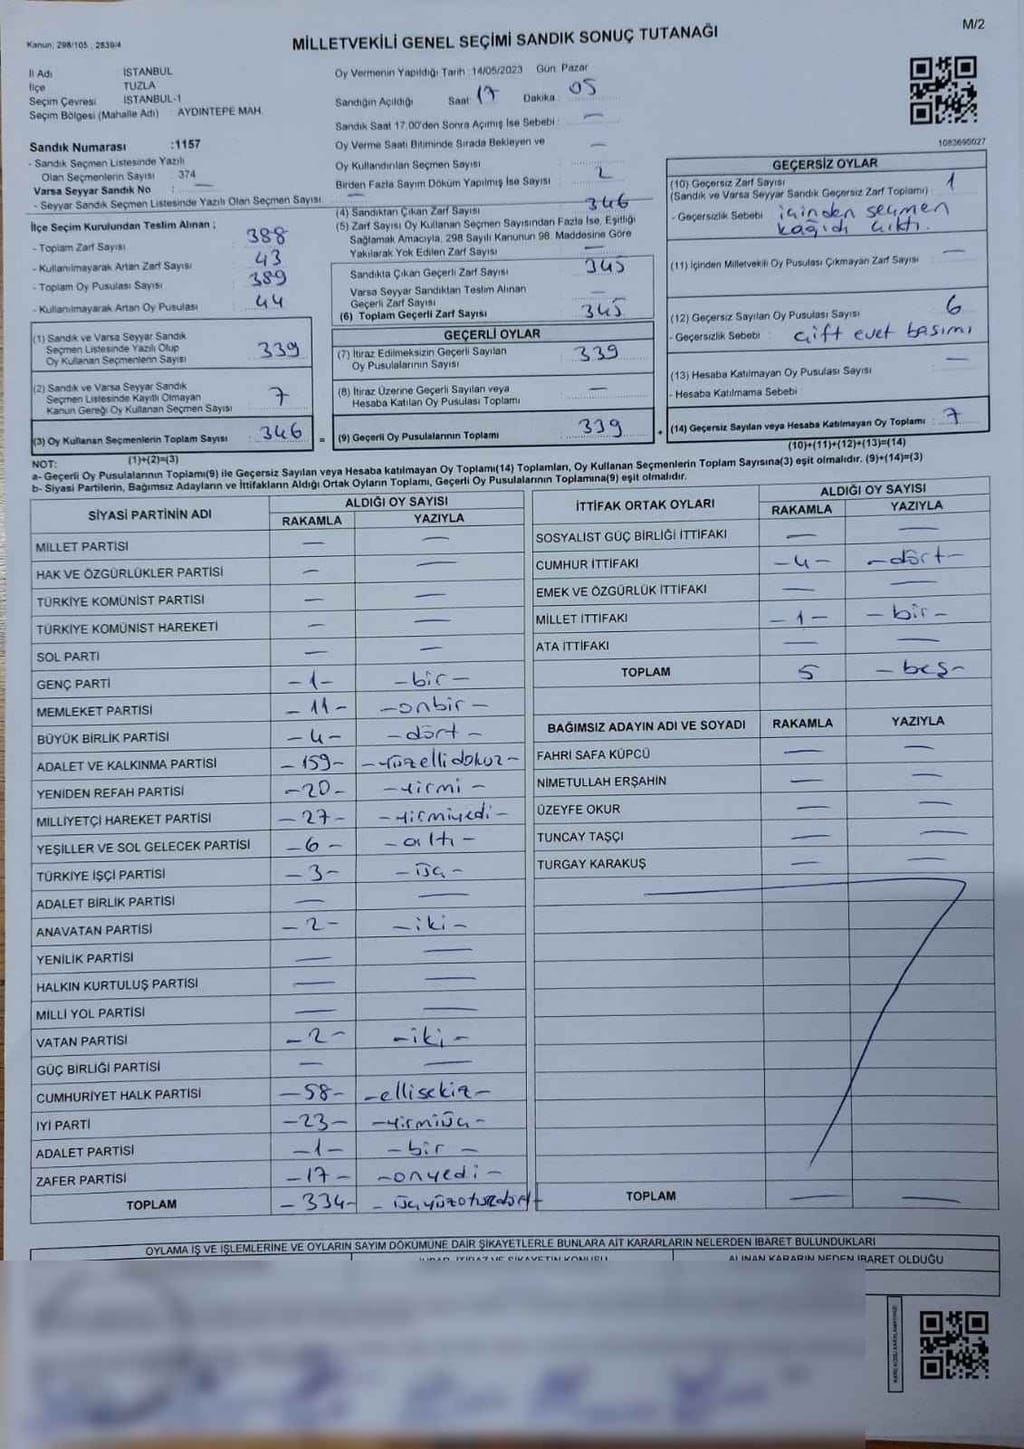 Kanun; 298/105 , 2839/4
MİLLETVEKİLİ GENEL SEÇİMİ SANDIK SONUÇ TUTANAĞI
M/2
İl Adı İSTANBUL
İlçe TUZLA
Seçim Çevresi İSTANBUL-1
Seçim Bölgesi (Mahalle Adı) : AYDINTEPE MAH.
Oy Vermenin Yapıldığı Tarih :14/05/2023 Gün: Pazar
Sandığın Açıldığı Saat: 17 Dakika: 05
Sandık Saat 17.00'den Sonra Açımış İse Sebebi : —
Oy Verme Saati Bitiminde Sırada Bekleyen ve
Oy Kullandırılan Seçmen Sayısı —
Birden Fazla Sayım Döküm Yapılmış İse Sayısı 2
1083690027
Sandık Numarası :1157
- Sandık Seçmen Listesinde Yazılı
Olan Seçmenlerin Sayısı : 374
Varsa Seyyar Sandık No : —
- Seyyar Sandık Seçmen Listesinde Yazılı Olan Seçmen Sayısı: —
İlçe Seçim Kurulundan Teslim Alınan ;
- Toplam Zarf Sayısı 388
- Kullanılmayarak Artan Zarf Sayısı 43
- Toplam Oy Pusulası Sayısı 389
- Kullanılmayarak Artan Oy Pusulası 44
(1) Sandık ve Varsa Seyyar Sandık
Seçmen Listesinde Yazılı Olup
Oy Kullanan Seçmenlerin Sayısı 339
(2) Sandık ve Varsa Seyyar Sandık
Seçmen Listesinde Kayıtlı Olmayan
Kanun Gereği Oy Kullanan Seçmen Sayısı 7
(3) Oy Kullanan Seçmenlerin Toplam Sayısı : 346 =
(1)+(2)=(3)
(4) Sandıktan Çıkan Zarf Sayısı 346
(5) Zarf Sayısı Oy Kullanan Seçmen Sayısından Fazla İse, Eşitliği
Sağlamak Amacıyla, 298 Sayılı Kanunun 98. Maddesine Göre
Yakılarak Yok Edilen Zarf Sayısı —
Sandıkta Çıkan Geçerli Zarf Sayısı 345
Varsa Seyyar Sandıktan Teslim Alınan
Geçerli Zarf Sayısı —
(6) Toplam Geçerli Zarf Sayısı 345
GEÇERLİ OYLAR
(7) İtiraz Edilmeksizin Geçerli Sayılan
Oy Pusulalarının Sayısı 339
(8) İtiraz Üzerine Geçerli Sayılan veya
Hesaba Katılan Oy Pusulası Toplamı —
(9) Geçerli Oy Pusulalarının Toplamı 339 +
GEÇERSİZ OYLAR
(10) Geçersiz Zarf Sayısı
(Sandık ve Varsa Seyyar Sandık Geçersiz Zarf Toplamı) 1
- Geçersizlik Sebebi : içinden seçmen
kağıdı çıktı.
(11) İçinden Milletvekili Oy Pusulası Çıkmayan Zarf Sayısı —
(12) Geçersiz Sayılan Oy Pusulası Sayısı 6
- Geçersizlik Sebebi : çift evet basımı
(13) Hesaba Katılmayan Oy Pusulası Sayısı —
- Hesaba Katılmama Sebebi
(14) Geçersiz Sayılan veya Hesaba Katılmayan Oy Toplamı : 7
(10)+(11)+(12)+(13)=(14)
NOT:
a- Geçerli Oy Pusulalarının Toplamı(9) ile Geçersiz Sayılan veya Hesaba katılmayan Oy Toplamı(14) Toplamları, Oy Kullanan Seçmenlerin Toplam Sayısına(3) eşit olmalıdır. (9)+(14)=(3)
b- Siyasi Partilerin, Bağımsız Adayların ve İttifakların Aldığı Ortak Oyların Toplamı, Geçerli Oy Pusulalarının Toplamına(9) eşit olmalıdır.
SİYASİ PARTİNİN ADI ALDIĞI OY SAYISI
RAKAMLA YAZIYLA
MİLLET PARTİSİ — —
HAK VE ÖZGÜRLÜKLER PARTİSİ — —
TÜRKİYE KOMÜNİST PARTİSİ — —
TÜRKİYE KOMÜNİST HAREKETİ — —
SOL PARTİ — —
GENÇ PARTİ -1- -bir-
MEMLEKET PARTİSİ -11- -onbir-
BÜYÜK BİRLİK PARTİSİ -4- -dört-
ADALET VE KALKINMA PARTİSİ -159- -yüzellidokuz-
YENİDEN REFAH PARTİSİ -20- -yirmi-
MİLLİYETÇİ HAREKET PARTİSİ -27- -yirmiyedi-
YEŞİLLER VE SOL GELECEK PARTİSİ -6- -altı-
TÜRKİYE İŞÇİ PARTİSİ -3- -üç-
ADALET BİRLİK PARTİSİ — —
ANAVATAN PARTİSİ -2- -iki-
YENİLİK PARTİSİ — —
HALKIN KURTULUŞ PARTİSİ — —
MİLLİ YOL PARTİSİ — —
VATAN PARTİSİ -2- -iki-
GÜÇ BİRLİĞİ PARTİSİ — —
CUMHURİYET HALK PARTİSİ -58- -ellisekiz-
İYİ PARTİ -23- -yirmiüç-
ADALET PARTİSİ -1- -bir-
ZAFER PARTİSİ -17- -onyedi-
TOPLAM -334- - üçyüzotuzdört
İTTİFAK ORTAK OYLARI ALDIĞI OY SAYISI
RAKAMLA YAZIYLA
SOSYALİST GÜÇ BİRLİĞİ İTTİFAKI — —
CUMHUR İTTİFAKI -4- -dört-
EMEK VE ÖZGÜRLÜK İTTİFAKI — —
MİLLET İTTİFAKI -1- -bir-
ATA İTTİFAKI — —
TOPLAM 5 -beş-
BAĞIMSIZ ADAYIN ADI VE SOYADI RAKAMLA YAZIYLA
FAHRİ SAFA KÜPCÜ — —
NİMETULLAH ERŞAHİN — —
ÜZEYFE OKUR — —
TUNCAY TAŞÇI — —
TURGAY KARAKUŞ — —
TOPLAM — —
OYLAMA İŞ VE İŞLEMLERİNE VE OYLARIN SAYIM DÖKÜMÜNE DAİR ŞİKAYETLERLE BUNLARA AİT KARARLARIN NELERDEN İBARET BULUNDUKLARI
ALINAN KARARIN NEDEN İBARET OLDUĞU